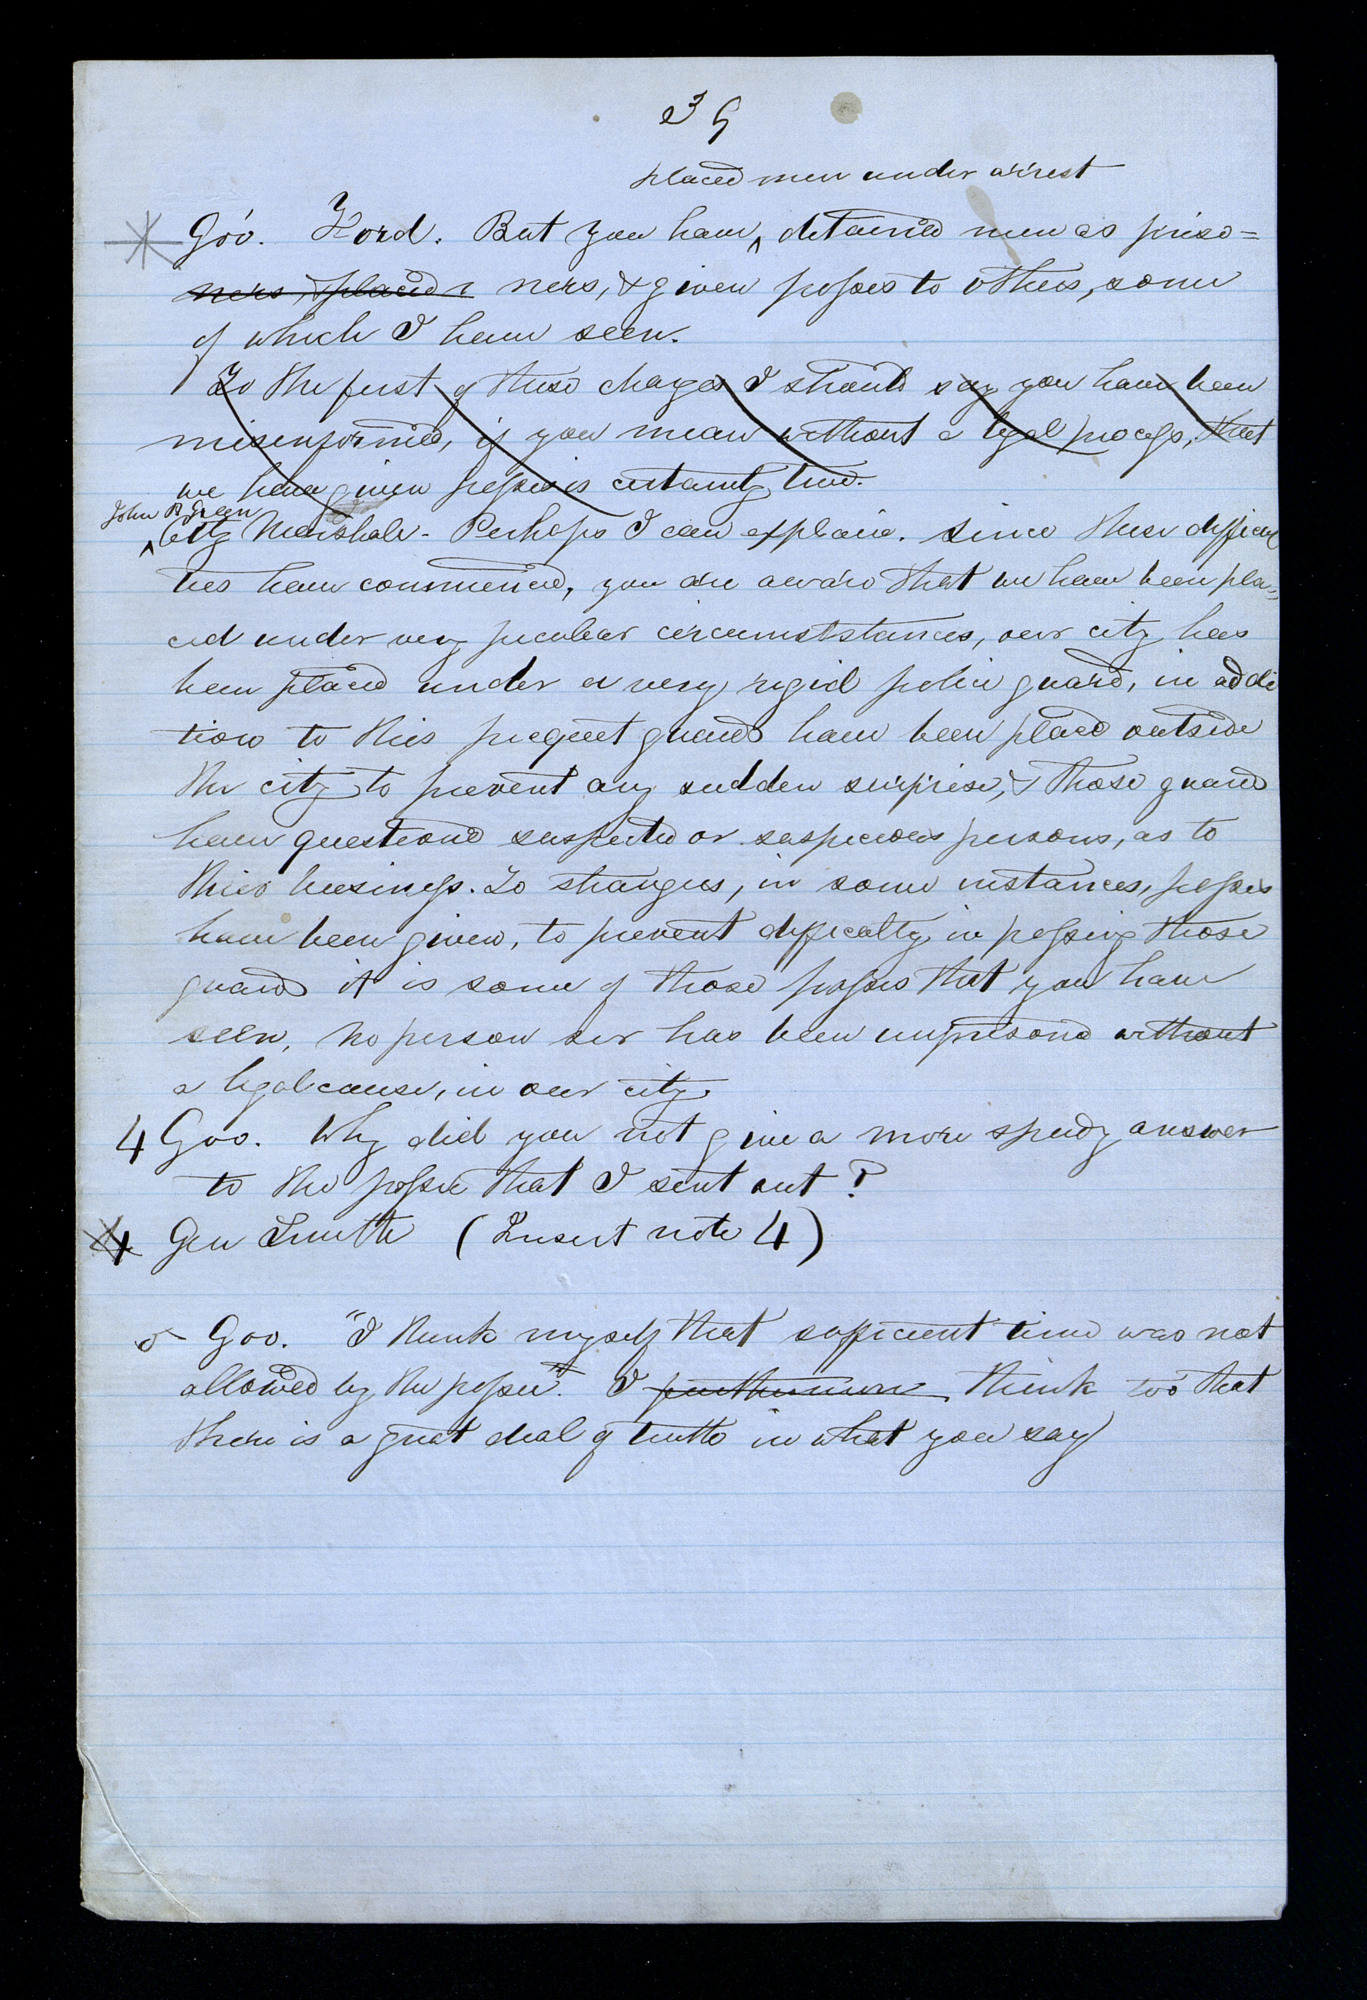 39
placed men under arrest
Gov. Ford. But you have ‸ detained men as priso=
ners, & placed ners, & given passes to others, some
of which I have seen.
To the first of these charges I should say you have been
misinformed, if you mean without a legal process, that
we have given passes is certainly true.
John P. Green
‸ City Marshale - Perhaps I can explain. since these difficul
ties have commenced, you are aware that we have been pla-
ced under very peculiar circumststances, our city has
been placed under a very rigid police guard, in addi
tion to this frequent guards have been placed outside
the city to prevent any sudden surprise, & those guards
have questioned suspected or suspicious persons, as to
their business. To strangers, in some instances, passes
have been given, to prevent difficulty in passing those
guards it is some of those passes that you have
seen. No person sir has been imprisoned without
a legal cause, in our city.
4 Gov. Why did you not give a more speedy answer
to the posse that I sent out?
4 Gen Smith (Insert note 4)
5 Gov. "I think myself that sufficient time was not
allowed by the posse." I furthermore think too that
there is a great deal of truth in what you say